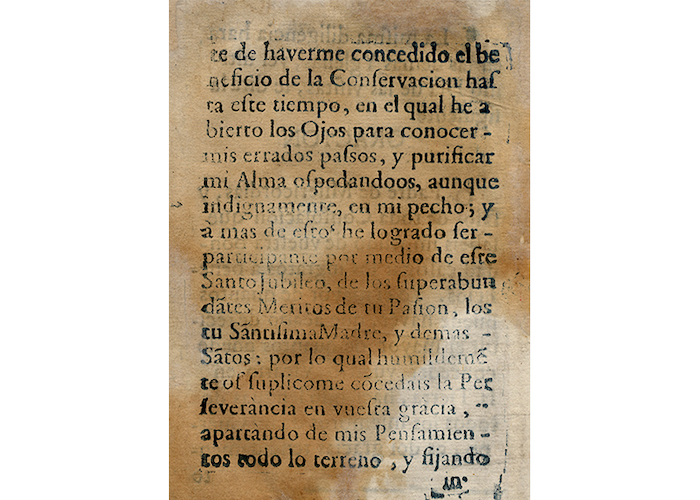 te de haverme concedido el be
neficio de la Conſervacion haſ
ta eſte tiempo, en el qual he a
bierto los Ojos para conocer -
mis errados paſsos, y purificar
mi Alma oſpedandoos, aunque
indignamente, en mi pecho; y
à mas de eſtoˢ he logrado ſer -
participante por medio de eſte
Santo Jubileo, de los ſuperabun
dãtes Meritos de tu Paſion, los
tu SãntiſimaMadre, y demas -
Sãtos: por lo qual humildemẽ
te oſ ſuplicome cõcedais la Per
ſeverància en vueſtra gràcia, -
apartàndo de mis Penſamien -
tos todo lo terreno, y fijando